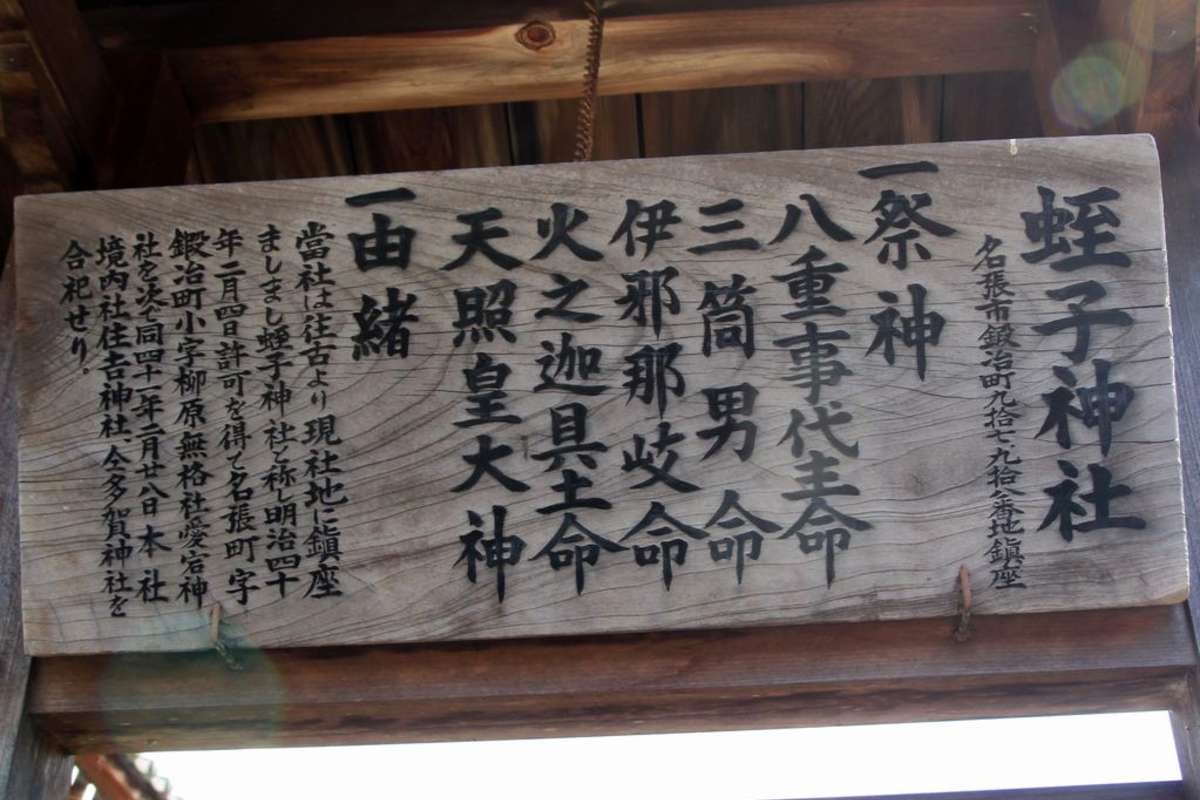 蛭子神社
名張市鍛冶町九拾七、九拾八番地鎮座
一祭神
八重事代主命
三筒男命
伊邪那岐命
火之迦具土命
天照皇大神
一由緒
當社は往古より現社地に鎮座
ましまし蛭子神社と称し明治四十
年二月四日許可を得て名張町字
鍛冶町小字柳原無格社愛宕神
社を次で同四十一年二月廿八日本社
境内社住吉神社、仝多賀神社を
合祀せり。